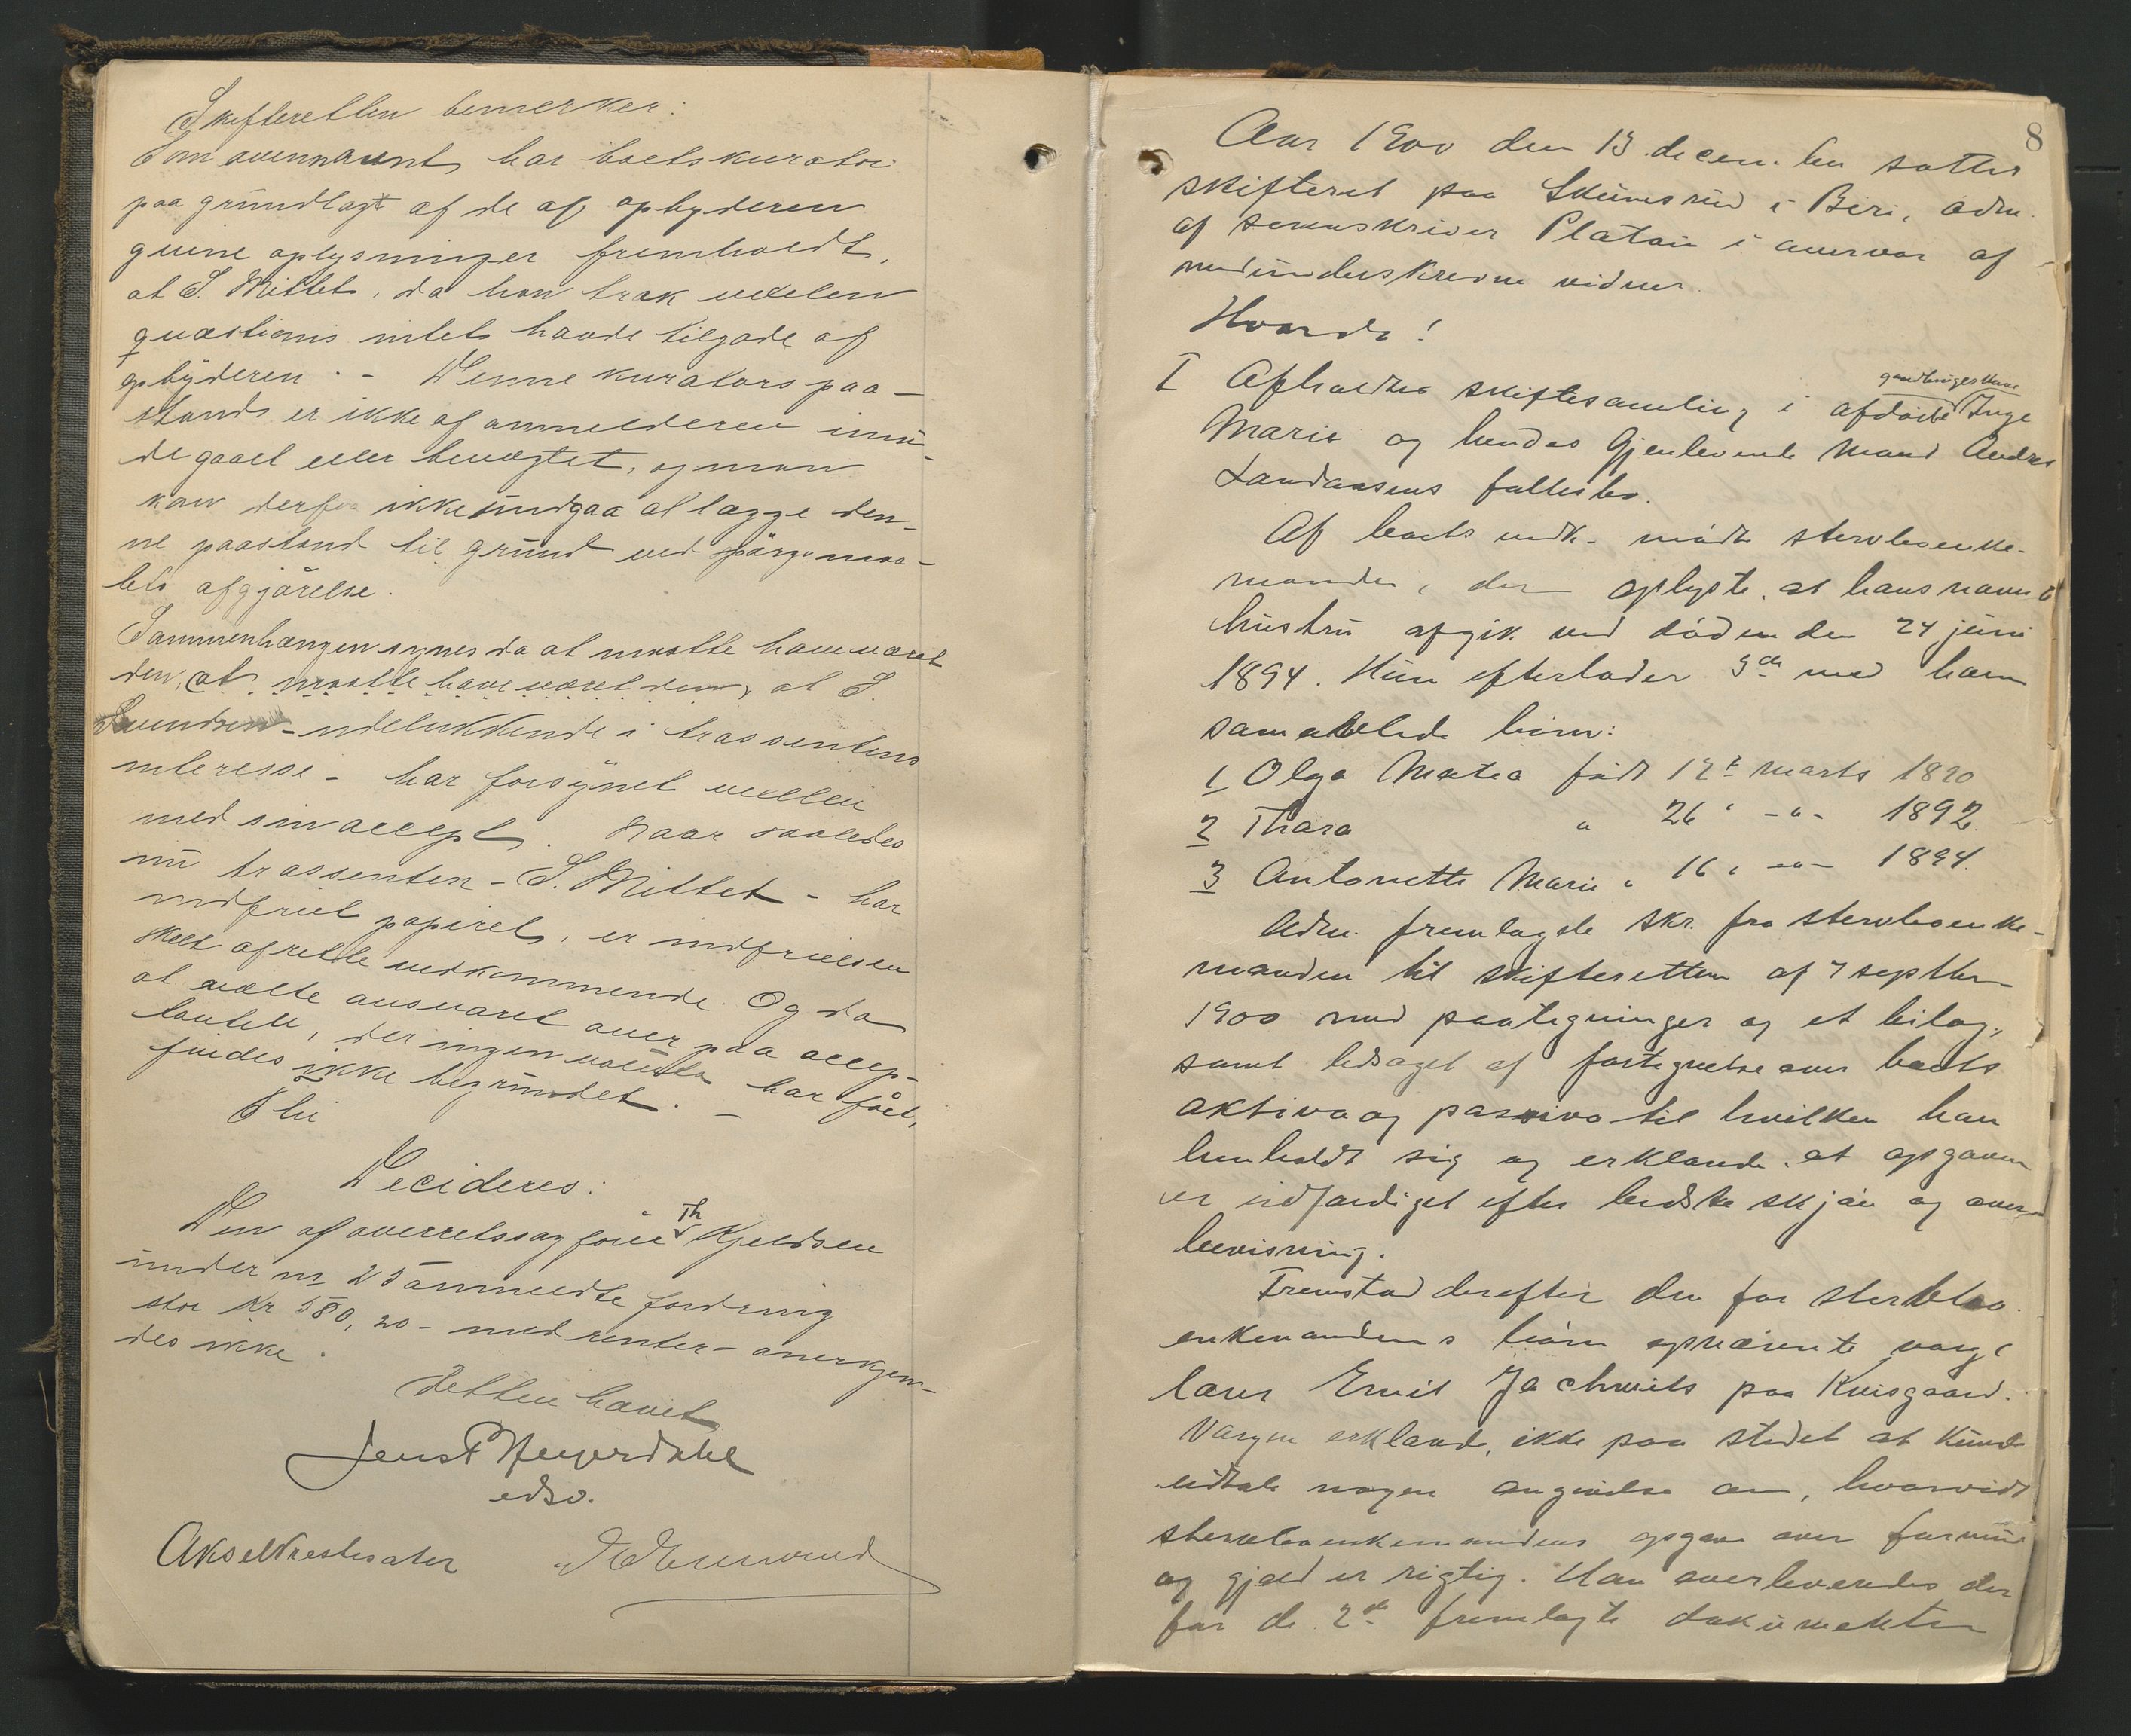 Skifteretten bemerker:
Som ovennævnt har boets kurator
paa grundlagt af de af opbyderen
givne oplysninger fremholdt,
at S. Mittet, da han trak vexlen
quæstionis intet havde tilgode af
opbyderen. - Denne kurators paa-
stand er ikke af anmelderen imø-
degaaet eller benægtet, og man
kan derfor ikke undgaa at lægge den-
ne paastand til grund ved spørgsmaa-
lets afgjørelse.
Sammenhængen synes da at maatte have været
den, at maatte have været den, at S.
Svendsen - udelukkende i trassentens
interesse - har forsynet vexlen
med sin accept. Naar saaledes
nu trassenten - S. Mittet - har
indfriet papiret, er indfrielsen
skeet af rette vedkommende. Og da
at vælte ansvaret over paa accep-
tanten, der ingen valuta har fået,
findes ikke begrundet. -
Thi
Decideres:
Den af overretssagfører Th Kjeldsen
under nr 25 anmeldte fordring
stor Kr 580,20 - med renter - anerkjen-
des ikke.
Retten hævet
Jens P Heyerdahl
edsv.
Aksel
8
Aar 1900 den 13 december sattes
skifteret paa Skumsrud i Biri, adm.
af sorenskriver Platou i overvær af
medunderskrevne vidner.
Hvorda!
I Afholdtes skiftesamling i afdøde gaardbrugerkone Inge
Marie og hendes gjenlevende mand Andreas
Landaasens fællesbo.
Af boets vedk. mødte stervboenke-
manden, der oplyste, at hans nævnte
hustru afgik ved døden den 24 juni
1894. Hun efterlader 3de med ham
sam avlede børn:
1 Olga Matea født 12te marts 1890
2 Thora " 26 " -"- 1892.
3 Antonette Marie " 16 " -"- 1894.
Adm. fremlagde skr. fra stervboenke-
manden til skifteretten af 7 septbr
1900 med paategninger og et bilag,
samt ledsaget af fortegnelse over boets
aktiva og passiva til hvilken han
henholdt sig og erklærede, at opgaven
er udfærdiget efter bedste skjøn og over-
bevisning.
Fremstod derefter den for stervbo-
enkemandens børn opnævnte verge
lærer Emil Jachwitz paa Kvisgaard.
Vergen erklærede, ikke paa stedet at kunde
udtale nogen angivelse om, hvorvidt
stervboenkemandens opgave over formue
og gjæld er rigtig. Han overleveredes der
for de 2de fremlagte dokumenter